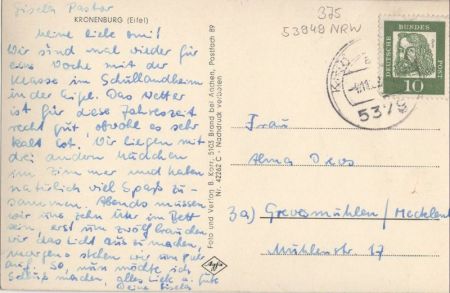 Gisela Pastor
KRONENBURG (Eifel)
Meine liebe Omi!
Wir sind mal wieder für
eine Woche mit der
Klasse im Schullandheim
in der Eifel. Das Wetter
ist für diese Jahreszeit
recht gut, obwohl es sehr
kalt ist. Wir liegen mit
drei andern Mädchen
im Zimmer und haben
natürlich viel Spaß zu-
sammen. Abends müssen
wir um zehn Uhr im Bett
sein, erst um zwölf brauchen
wir das Licht aus zu machen,
morgens stehen wir um
auf. So, nun möchte ich
Schluß machen, alles Liebe u. Gute
Deine Gisela
Foto und Verlag B. Korr, 5105 Brand bei Aachen, Postfach 89
Nr. 42262 C - Nachdruck verboten
Agfa
375
53949 NRW
DEUTSCHE
BUNDES
POST
10
5379
Frau
Alma Drews
3a) Grevesmühlen / Mecklenb
Mühlenstr. 17